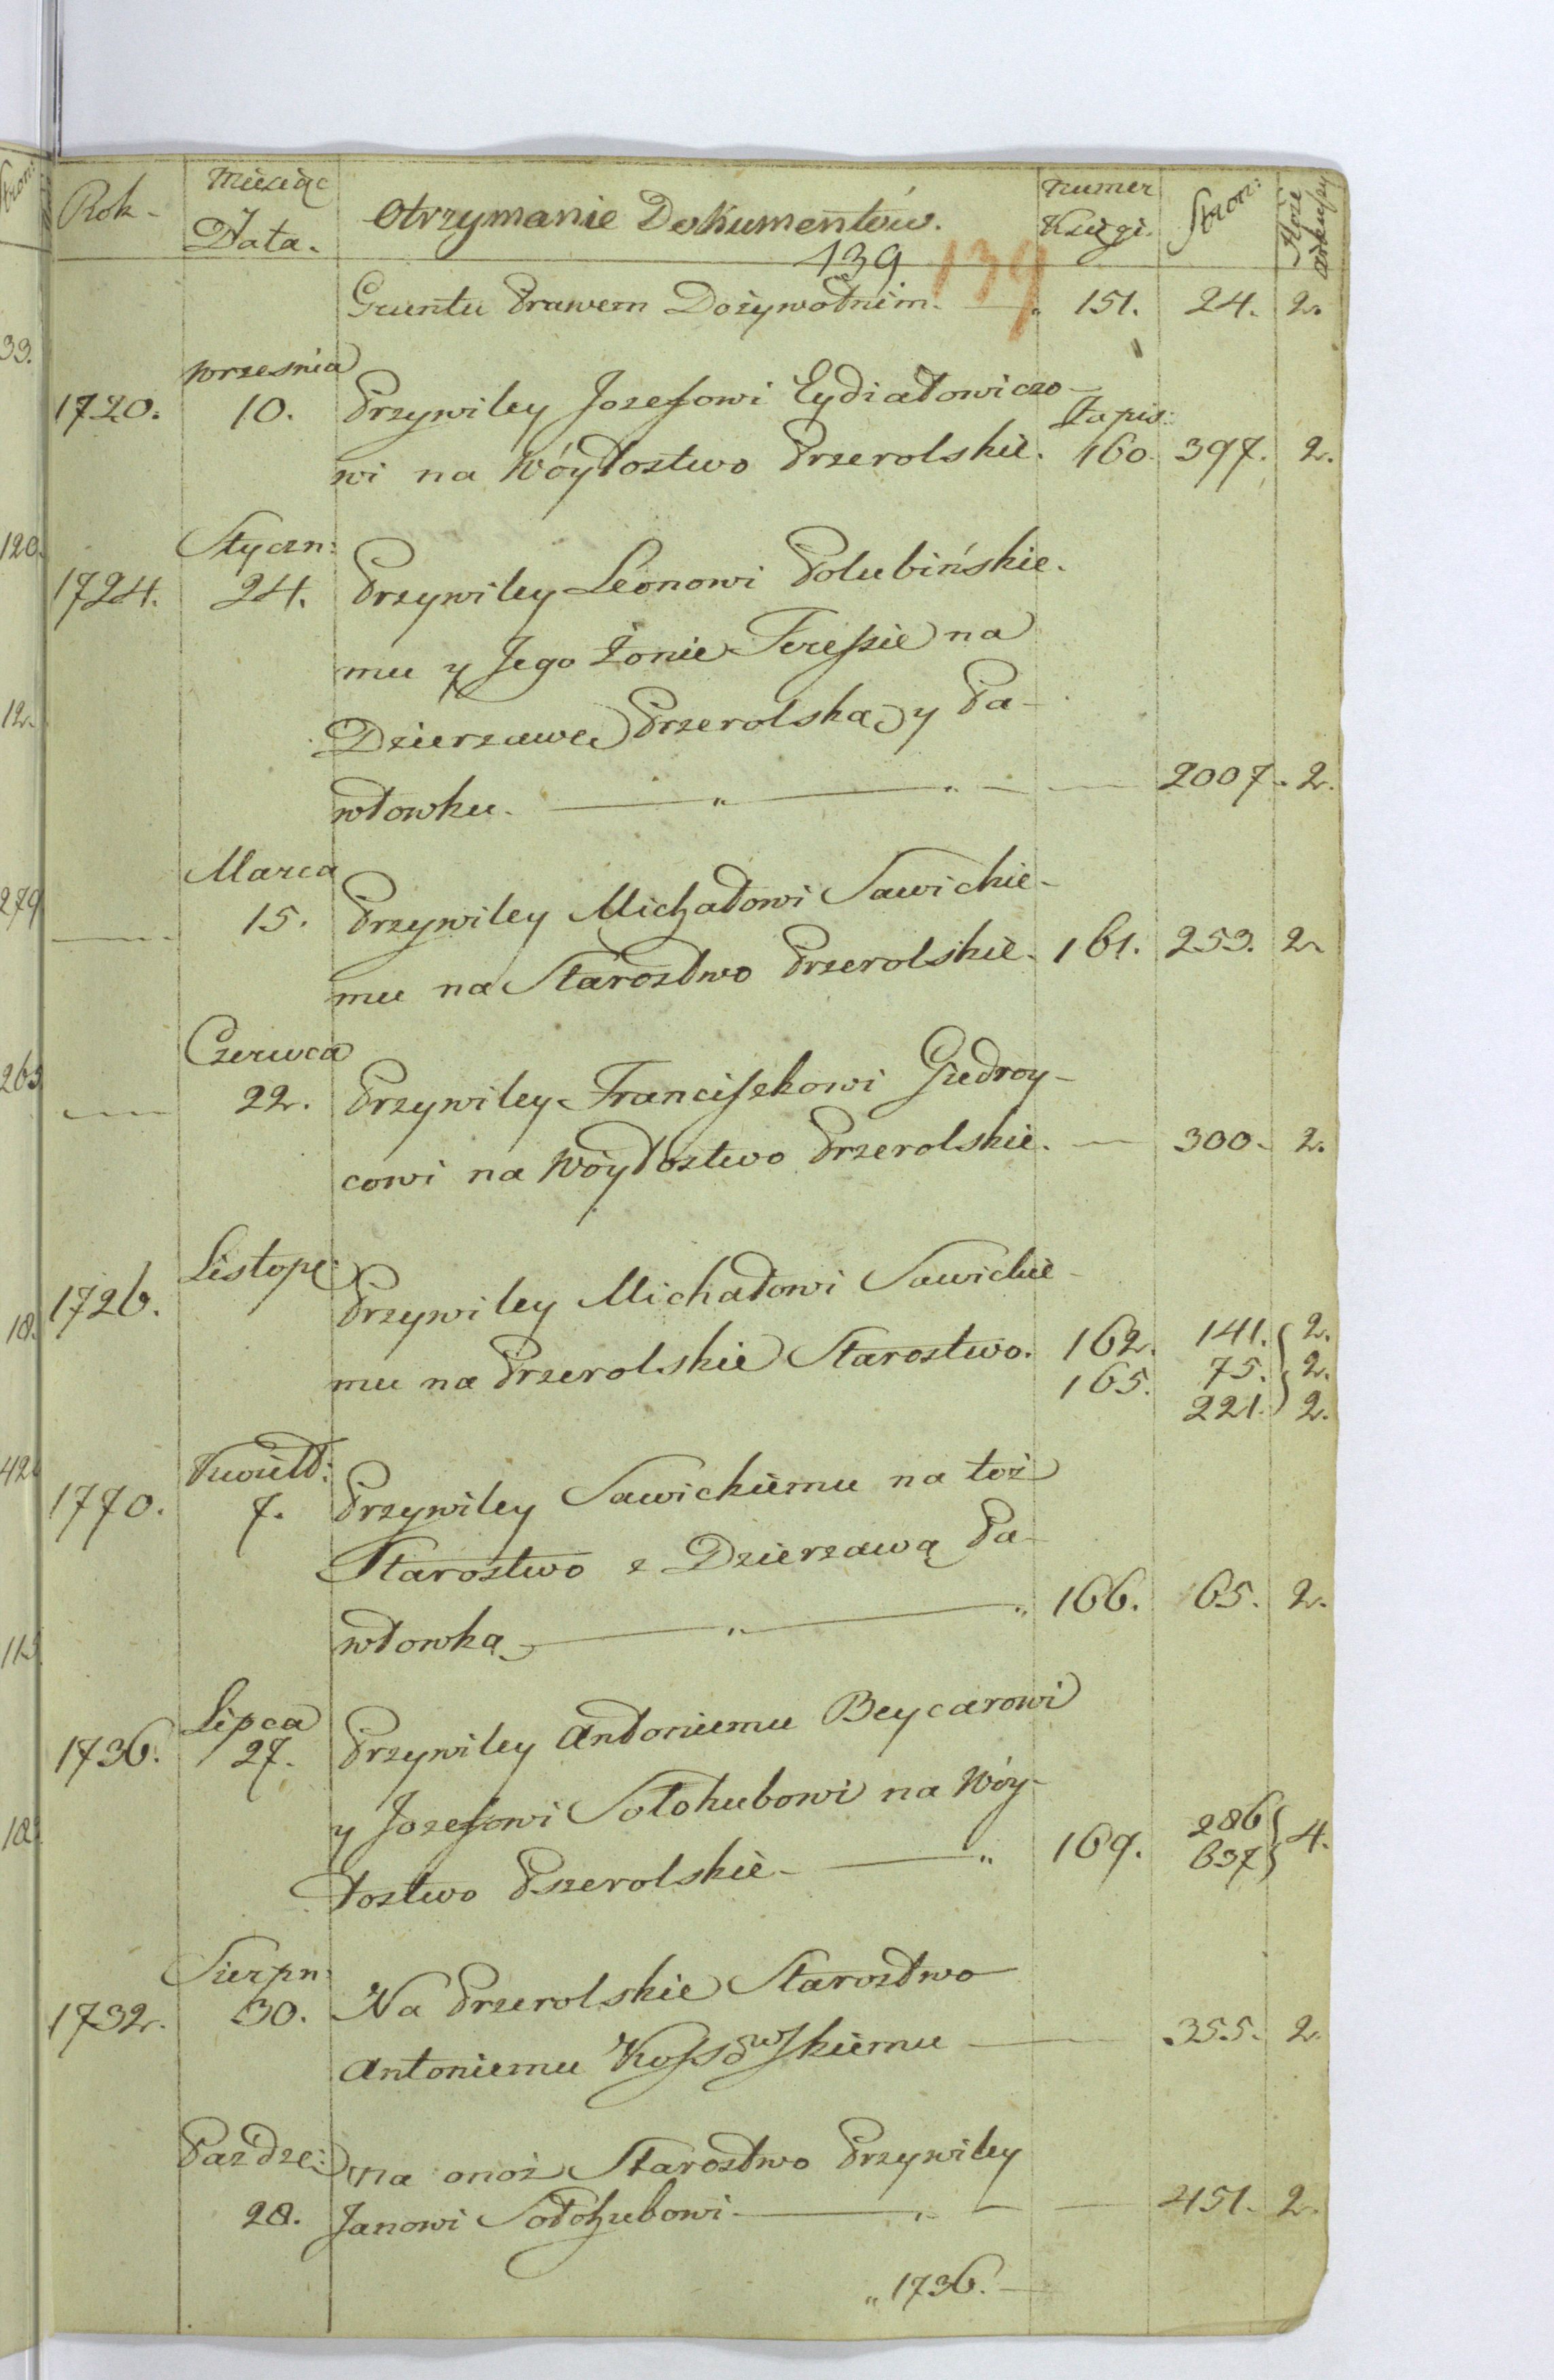 Rok - Miesiąc Data. Otrzymanie Dokumentów. Numer Księgi. Stron: Ileże arkuszy
139 139
Gruntu Prawem Dożywotnim. 151. 24. 2.
Wrzesnia
1720. 10. Przywiley Jozefowi Eydiatowiczo-
Zapis:
wi na Wóytostwo Przerolskie. 160. 397. 2.
Styczn:
1724. 24. Przywiley Leonowi Połubińskie-
mu y Jego Żonie Teressie na
Dzierzawę Przerolską y Pa-
włowku. — " — " — 2007. 2.
Marca
— 15. Przywiley Michałowi Sawickie-
mu na Starostwo Przerolskie. 161. 253. 2.
Czerwca
— 22. Przywiley Franciszkowi Giedroy-
cowi na Wóytostwo Przerolskie. — 300. 2.
Listop:
1726. Przywiley Michałowi Sawickie-
mu na Przerolskie Starostwo. 162. 141. 2.
165. 75. 2.
221. 2.
Kwiet:
1770. 7. Przywiley Sawickiemu na toż
Starostwo z Dzierzawą Pa-
włowką — " — " 166. 65. 2.
Lipca
1736. 27. Przywiley Antoniemu Beycarowi
y Jozefowi Sołohubowi na Wóy-
tostwo Przerolskie — " 169. 286 637 4.
Sierpn:
1732. 30. Na Przerolskie Starostwo
Antoniemu Kossowskiemu — 355. 2.
Paździe: Na onoż Starostwo Przywiley
28. Janowi Sołohubowi — " — 451. 2.
" 1736. —